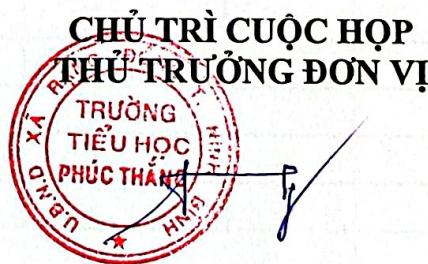 CHỦ TRÌ CUỘC HỌP
THỦ TRƯỞNG ĐƠN VỊ
U.B.N.D XÃ
TRƯỜNG
TIỂU HỌC
PHÚC THẮNG